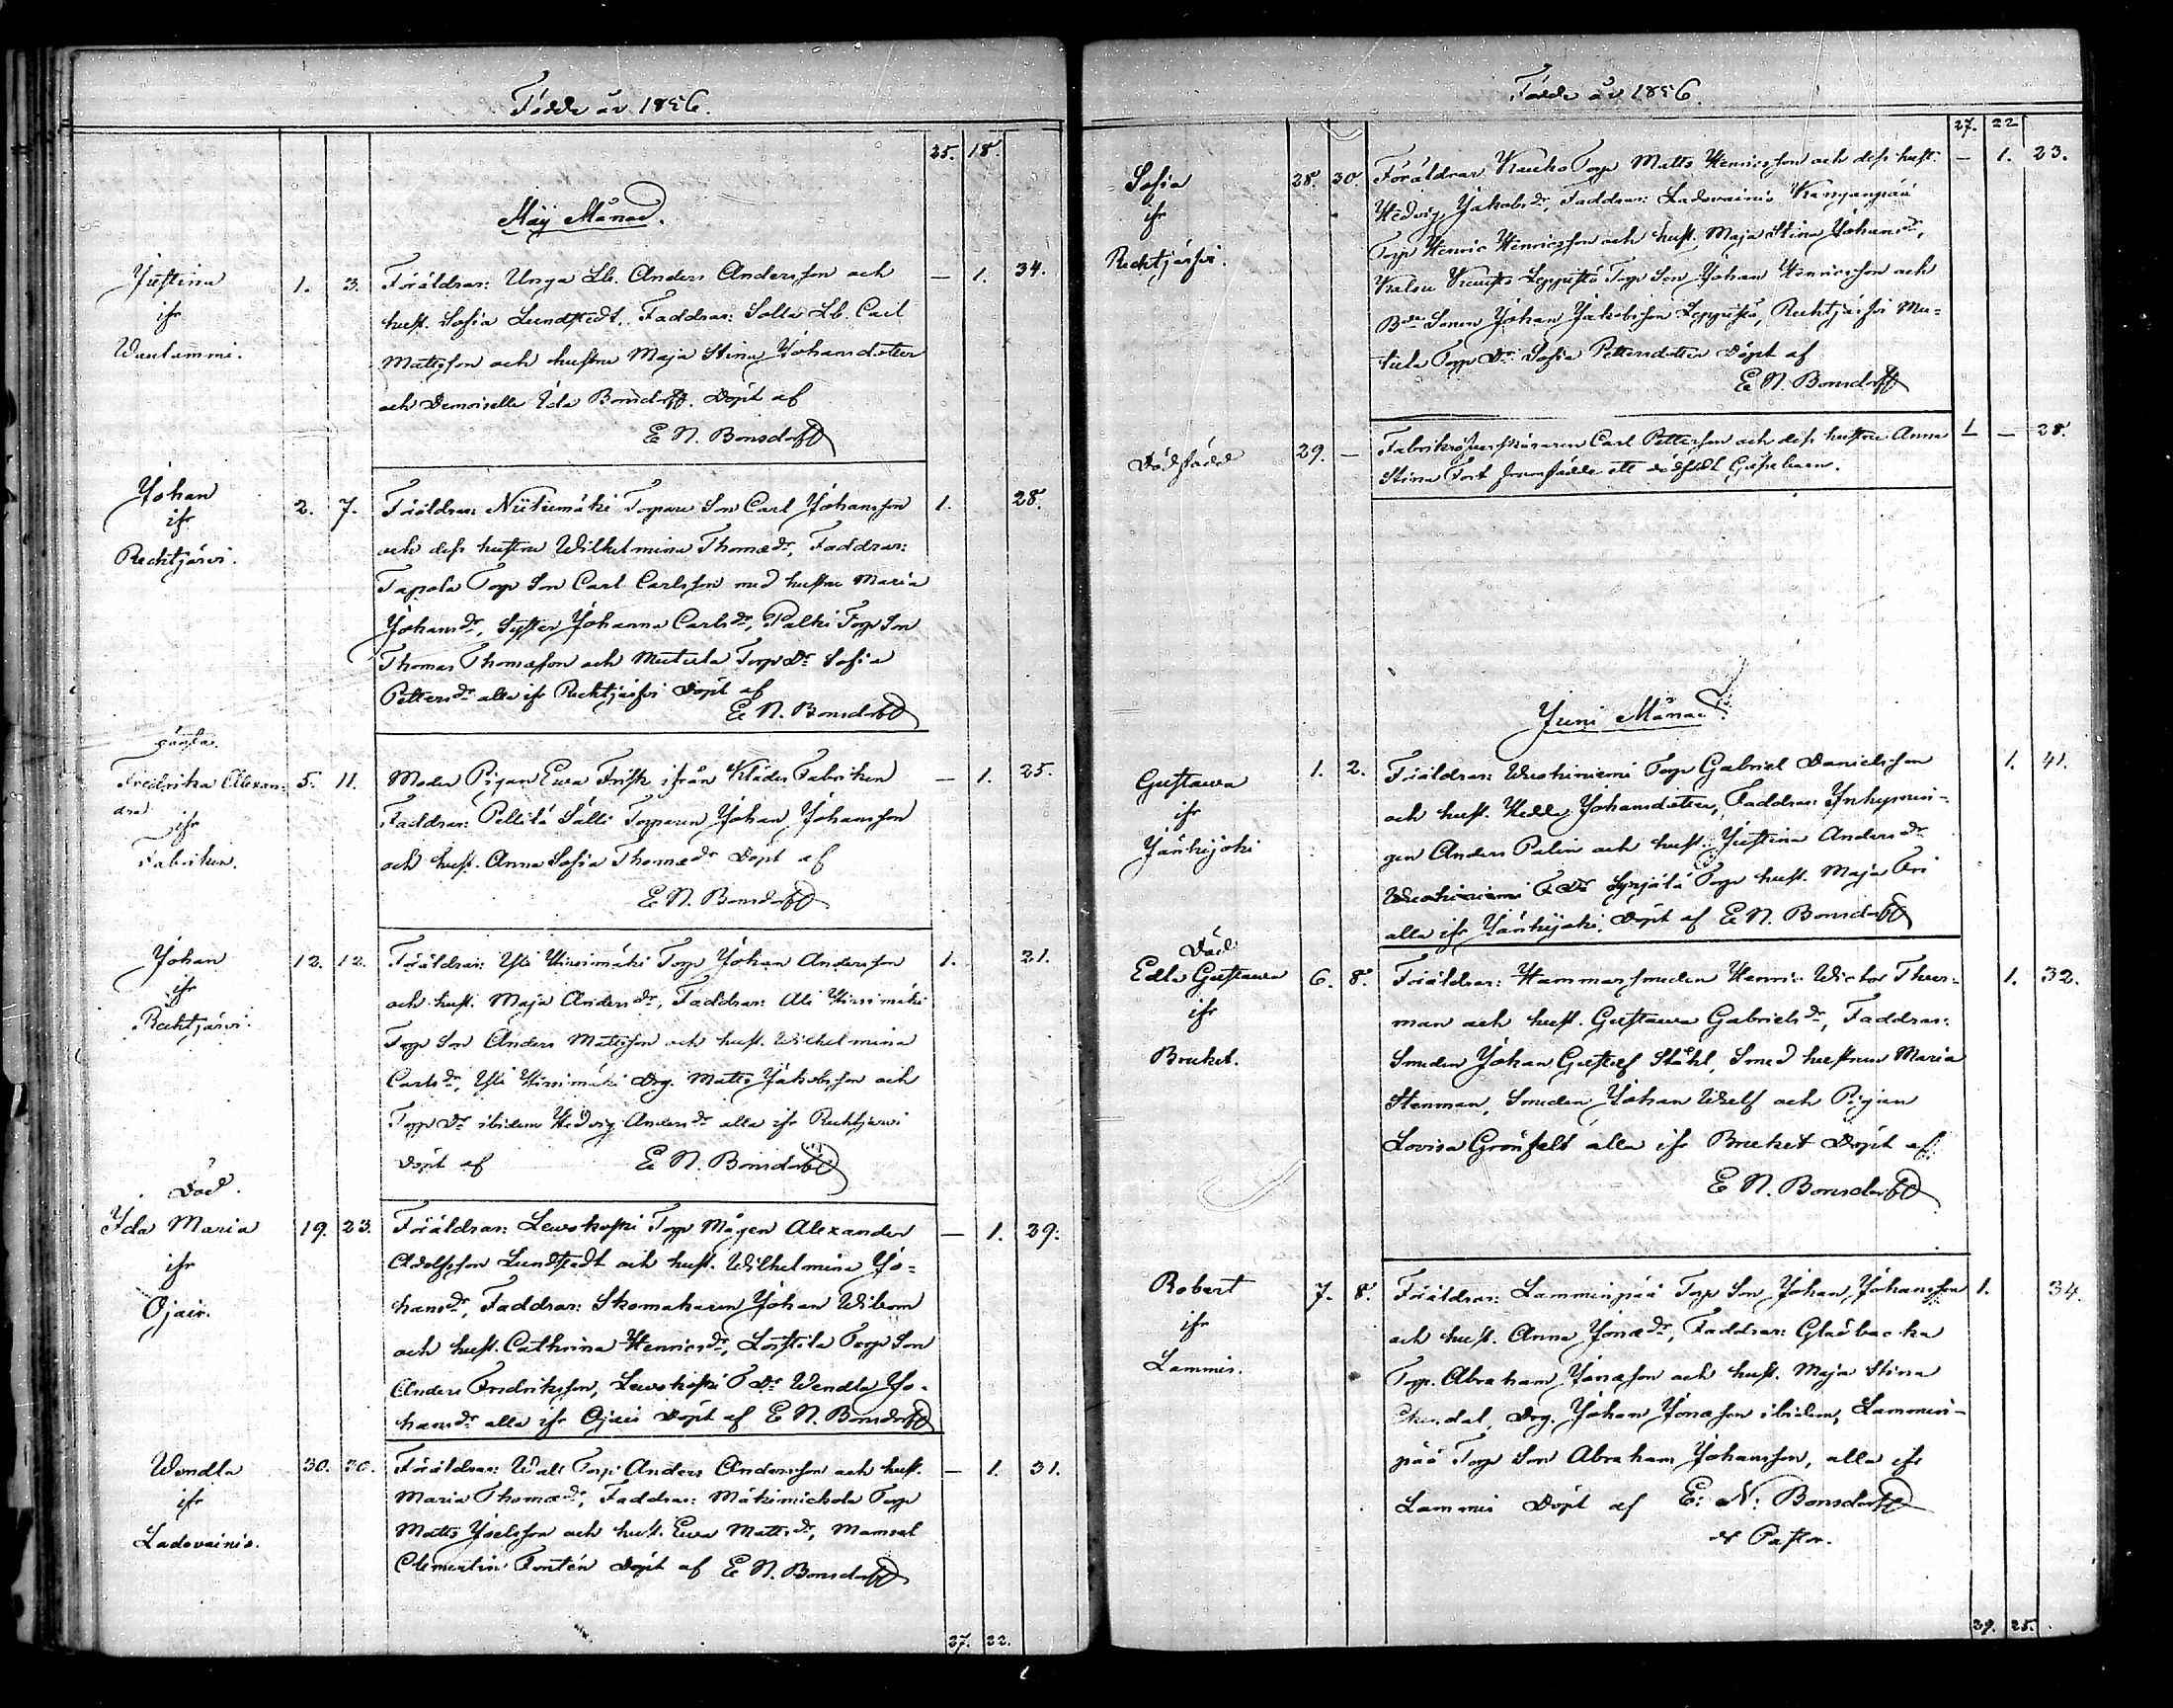 Födde år 1856.
25. 18.
Maij Månad.
Justina
ifr
Wanlammi.
1. 3. Föräldrar: Unga Lb. Anders Andersson och — 1. 34.
hust. Sofia Lundstedt, Faddrar: Lb. Carl
Mattsson och hustru Maja Stina Johansdotter
och Demoiselle Ida Bonsdorff. Döpt af
E N. Bonsdorff
Johan
ifr
Rechtjärvi.
2. 7. Föräldrar: Niitumäki Torpare Son Carl Johansson 1. 28.
och dess hustru Wilhelmina Thomædr, Faddrar:
Tapola Torp Son Carl Carlsson med hustru Maria
Johansdr, Syster Johanna Carlsdr, Palki Torp Son
Thomas Thomæson och Mutula Torp Dr Sofia
Pettersdr alla ifr Rechtjärfvi Döpt af
E N. Bonsdorff
oäkta.
Fredrika Alexan-
dra
ifr
Fabriken.
5. 11. Moder Pigan Ewa Frisk ifrån Klädes Fabriken — 1. 25.
Faddrar: Pellilä Sälli Torparen Johan Johansson
och hust. Anna Sofia Thomædr Döpt af
E N. Bonsdorff
Johan
ifr
Rechtjärvi.
12. 12. Föräldrar: Yli Hirsimäki Torp Johan Andersson 1. 21.
och hust. Maja Andersdr, Faddrar: Ali Hirsimäki
Torp Son Anders Mattsson och hust. Wilhelmina
Carlsdr, Yli Hirsimäki Drg. Matts Jakobsson och
Torp Dr ibidem Hedvig Andersdr alla ifr Rechtjärvi
Döpt af E N. Bonsdorff
Död.
Ida Maria
ifr
Ojais.
19. 23. Föräldrar: Lewokoski Torp Mågen Alexander — 1. 29.
Adolfsson Lundstedt och hust. Wilhelmina Jo-
hansdr, Faddrar: Skomakaren Johan Wibom
och hust. Cathrina Henricsdr, Torp Son
Anders Fredriksson, Lewokoski T Dr Wendla Jo-
hansdr alla ifr Ojais Döpt af E N. Bonsdorff
Wendla
ifr
Ladovainio.
30. 30. Föräldrar: Wali Torp Anders Andersson och hust. — 1. 31.
Maria Thomædr, Faddrar: Mäkimichola Torp
Matts Joelsson och hust. Ewa Mattsdr, Mamsel
Clementin Fontén Döpt af E N. Bonsdorff
27. 22.
Födde år 1856.
27. 22
Sofia
ifr
Rechtjärfvi.
28. 30. Föräldrar: Torp Matts Henricsson och dess hust. — 1. 23.
Hedvig Jakobsdr, Faddrar: Ladovainio Kangaspää
Torp Henric Henricsson och hust. Maja Stina Johansdr,
Leppistö Torp Son Johan Henricsson och
Bde Sonen Johan Jakobsson Leppistö, Rechtjärfvi Mu-
tula Torp Dr Sofia Pettersdotter Döpt af
E N. Bonsdorff
Dödfödde
29. — Carl Pettersson och dess hustru Anna 1 — 28.
Stina Fort framfödde ett dödfödt Gossebarn.
Juni Månad.
Gustawa
ifr
Jänhijoki
1. 2. Föräldrar: Wuohiniemi Torp Gabriel Danielsson 1. 41.
och hust. Hedda Johansdotter, Faddrar: Inhysnin-
gen Anders Palin och hust. Justina Andersdr
Wuohiniemi T Dr Syrjälä Torp hust. Maja
alla ifr Jänhijoki, Döpt af E N. Bonsdorff
Död
Edla Gustawa
ifr
Bruket.
6. 8. Föräldrar: Hammarsmeden Henric Wictor Thur- 1. 32.
man och hust. Gustawa Gabrielsdr, Faddrar:
Smeden Johan Gustaf Ståhl, Smed hustrun Maria
Stenman, Smeden Johan Welf och Pigan
Lovisa Grönfelt alla ifr Bruket Döpt af
E N. Bonsdorff
Robert
ifr
Lammis.
7. 8. Föräldrar: Lamminpää Torp Son Johan Johansson 1. 34.
och hust. Anna Jonædr, Faddrar: Gladbacka
Torp. Abraham Jonæson och hust. Maja Stina
Drg. Johan Jonæson ibidem, Lammin-
pää Torp Son Abraham Johansson, alla ifr
Lammis Döpt af E: N: Bonsdorff
Pastor.
29. 25.